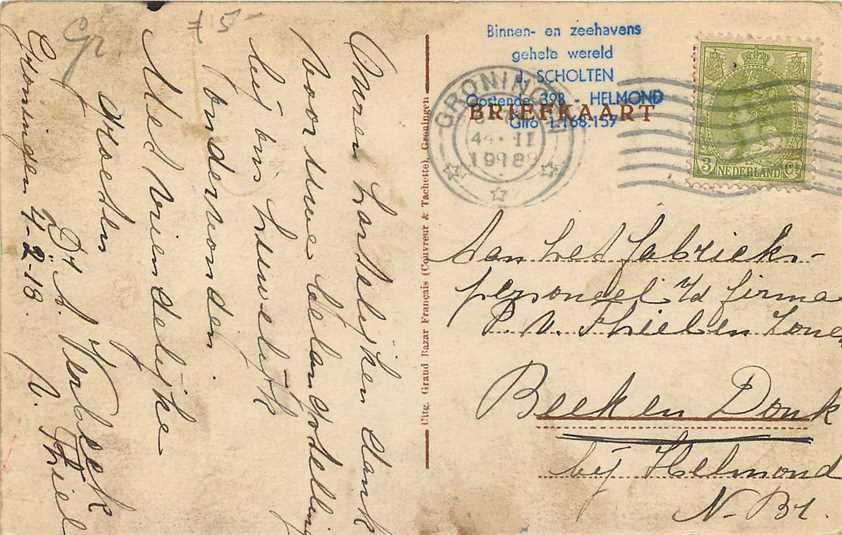 Gr
£5-
Onzen hartelijken dank
voor uwe belangstelling
bij ons huwelijk
ondervonden.
Met vriendelijke
groeten
Dr A. Verbeek
v. Thiel
Groningen 4-2-18.
Uitg. Grand Bazar Français (Couvreur & Tachette), Groningen
Binnen- en zeehavens
gehele wereld
J. SCHOLTEN
Oostende 398 - HELMOND
Giro 1.168.157
BRIEFKAART
GRONINGEN
II
3 NEDERLAND Ct
Aan het fabrieks-
personeel v/d firma
P. v. Thiel en Zonen
Beek en Donk
bij Helmond
N. Br.